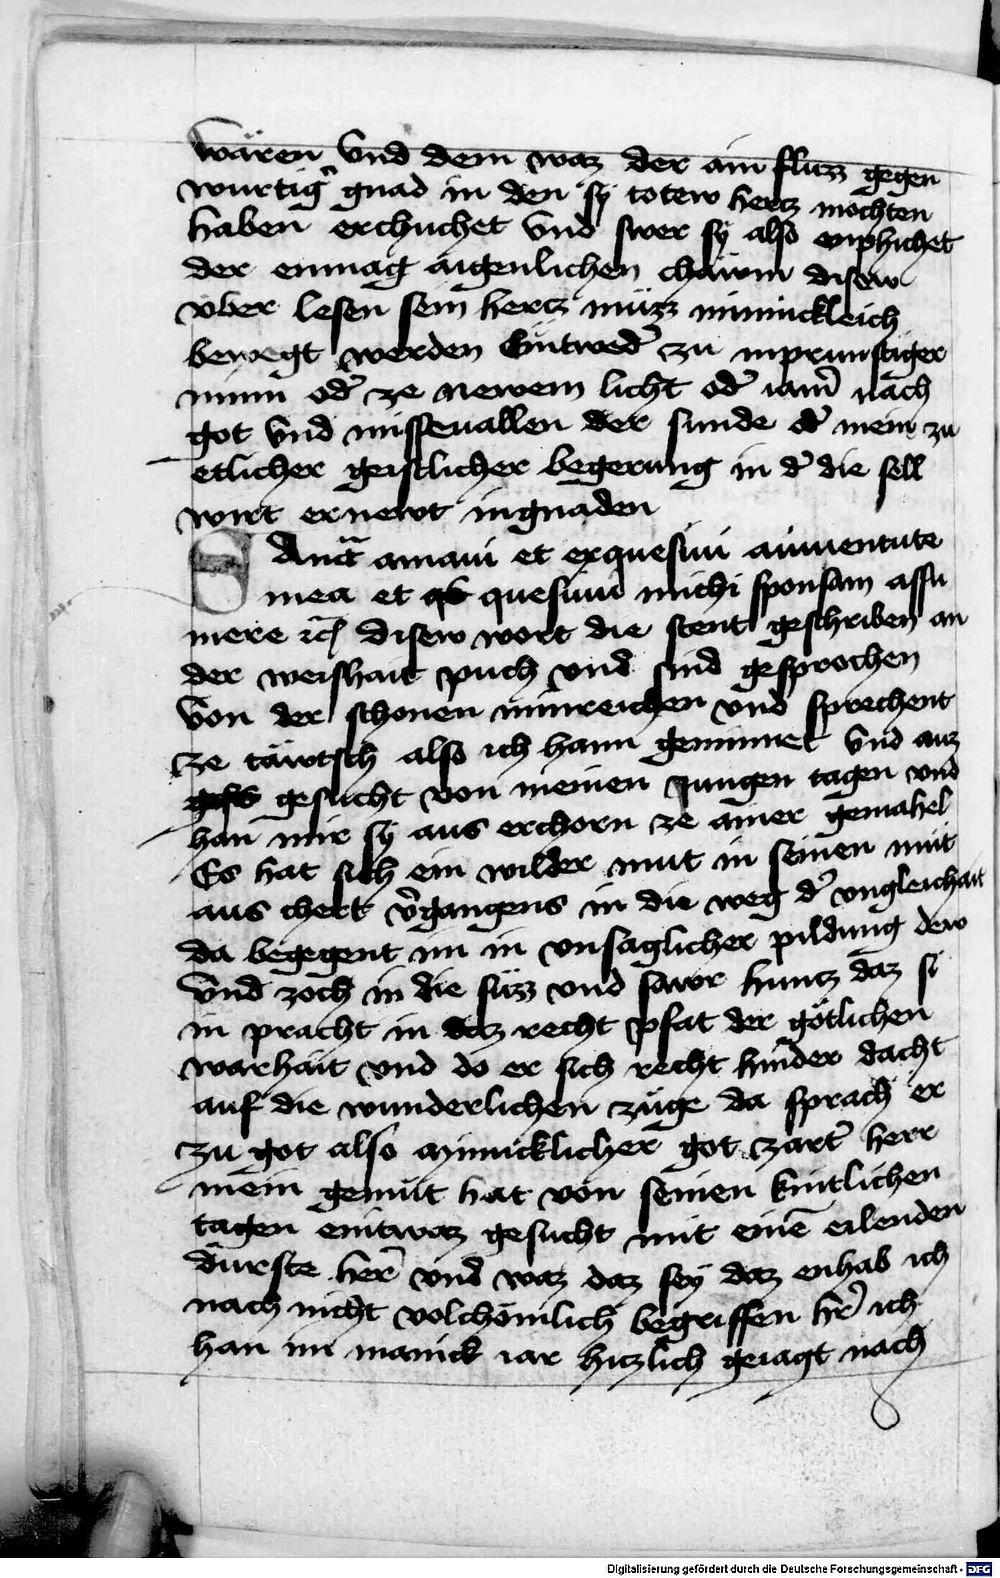 wären Vnd dem waz der ain fluzz gegen
wurtig' gnad in den sÿ totew hertz mochten
haben erchuchet Vnd swer sÿ also enphichet
der enmag aigenlichen chawm disew
vber lesen sein hertz müzz minnickleich
bewegt werden Eintwed' zu inprunstiger
minn od' ze newem licht od' iam' nach
got Vnd missevallen der sunde od' mein zu
etlicher geistlicher begerung in d' die sell
wirt ernewt ingnaden
SAnct amaui et exquesiui aiuuentute
mea et quesiui michi sponsam assu
mere disew wort die stent geschriben an
der weishait puch vnd sind gesprochen
Von der schonen minreichen vnd sprechent
ze täwtsch also ich hann geminnet Vnd auz
gesucht von meinen Jungen tagen vnd
han mir sÿ aus erchorn ze ainer gemahel
Es hat sich ein wilder mut in seinen mut
aus chert v'gangens in die weg d' vngleichait
da begegent im in vnsaglicher pildung dew
Vnd zoch in die süzz vnd sawr huntz daz si
in pracht in daz recht pfat der götlichen
warhait vnd do er sich recht hinder dacht
auf die wunderlichen züge da sprach er
zu got also minnicklicher got zart' herr
mein gemüt hat von seinen kintlichen
tagen eintwaz gesucht mit eine' eilenden
durste her' vnd waz daz seÿ daz enhab ich
nach nicht volchömlich begriffen hr' ich
han im manick iar hitzlich geiagt nach
Digitalisierung gefördert durch die Deutsche Forschungsgemeinschaft - DFG